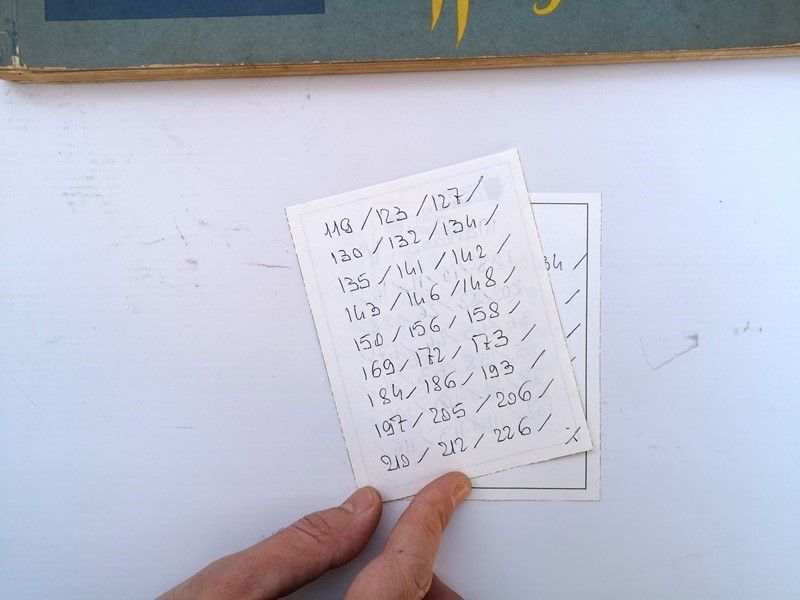 118 / 123 / 127 /
130 / 132 / 134 /
135 / 141 / 142 /
143 / 146 / 148 /
150 / 156 / 158 /
169 / 172 / 173 /
184 / 186 / 193 /
197 / 205 / 206 /
210 / 212 / 226 /
34 /